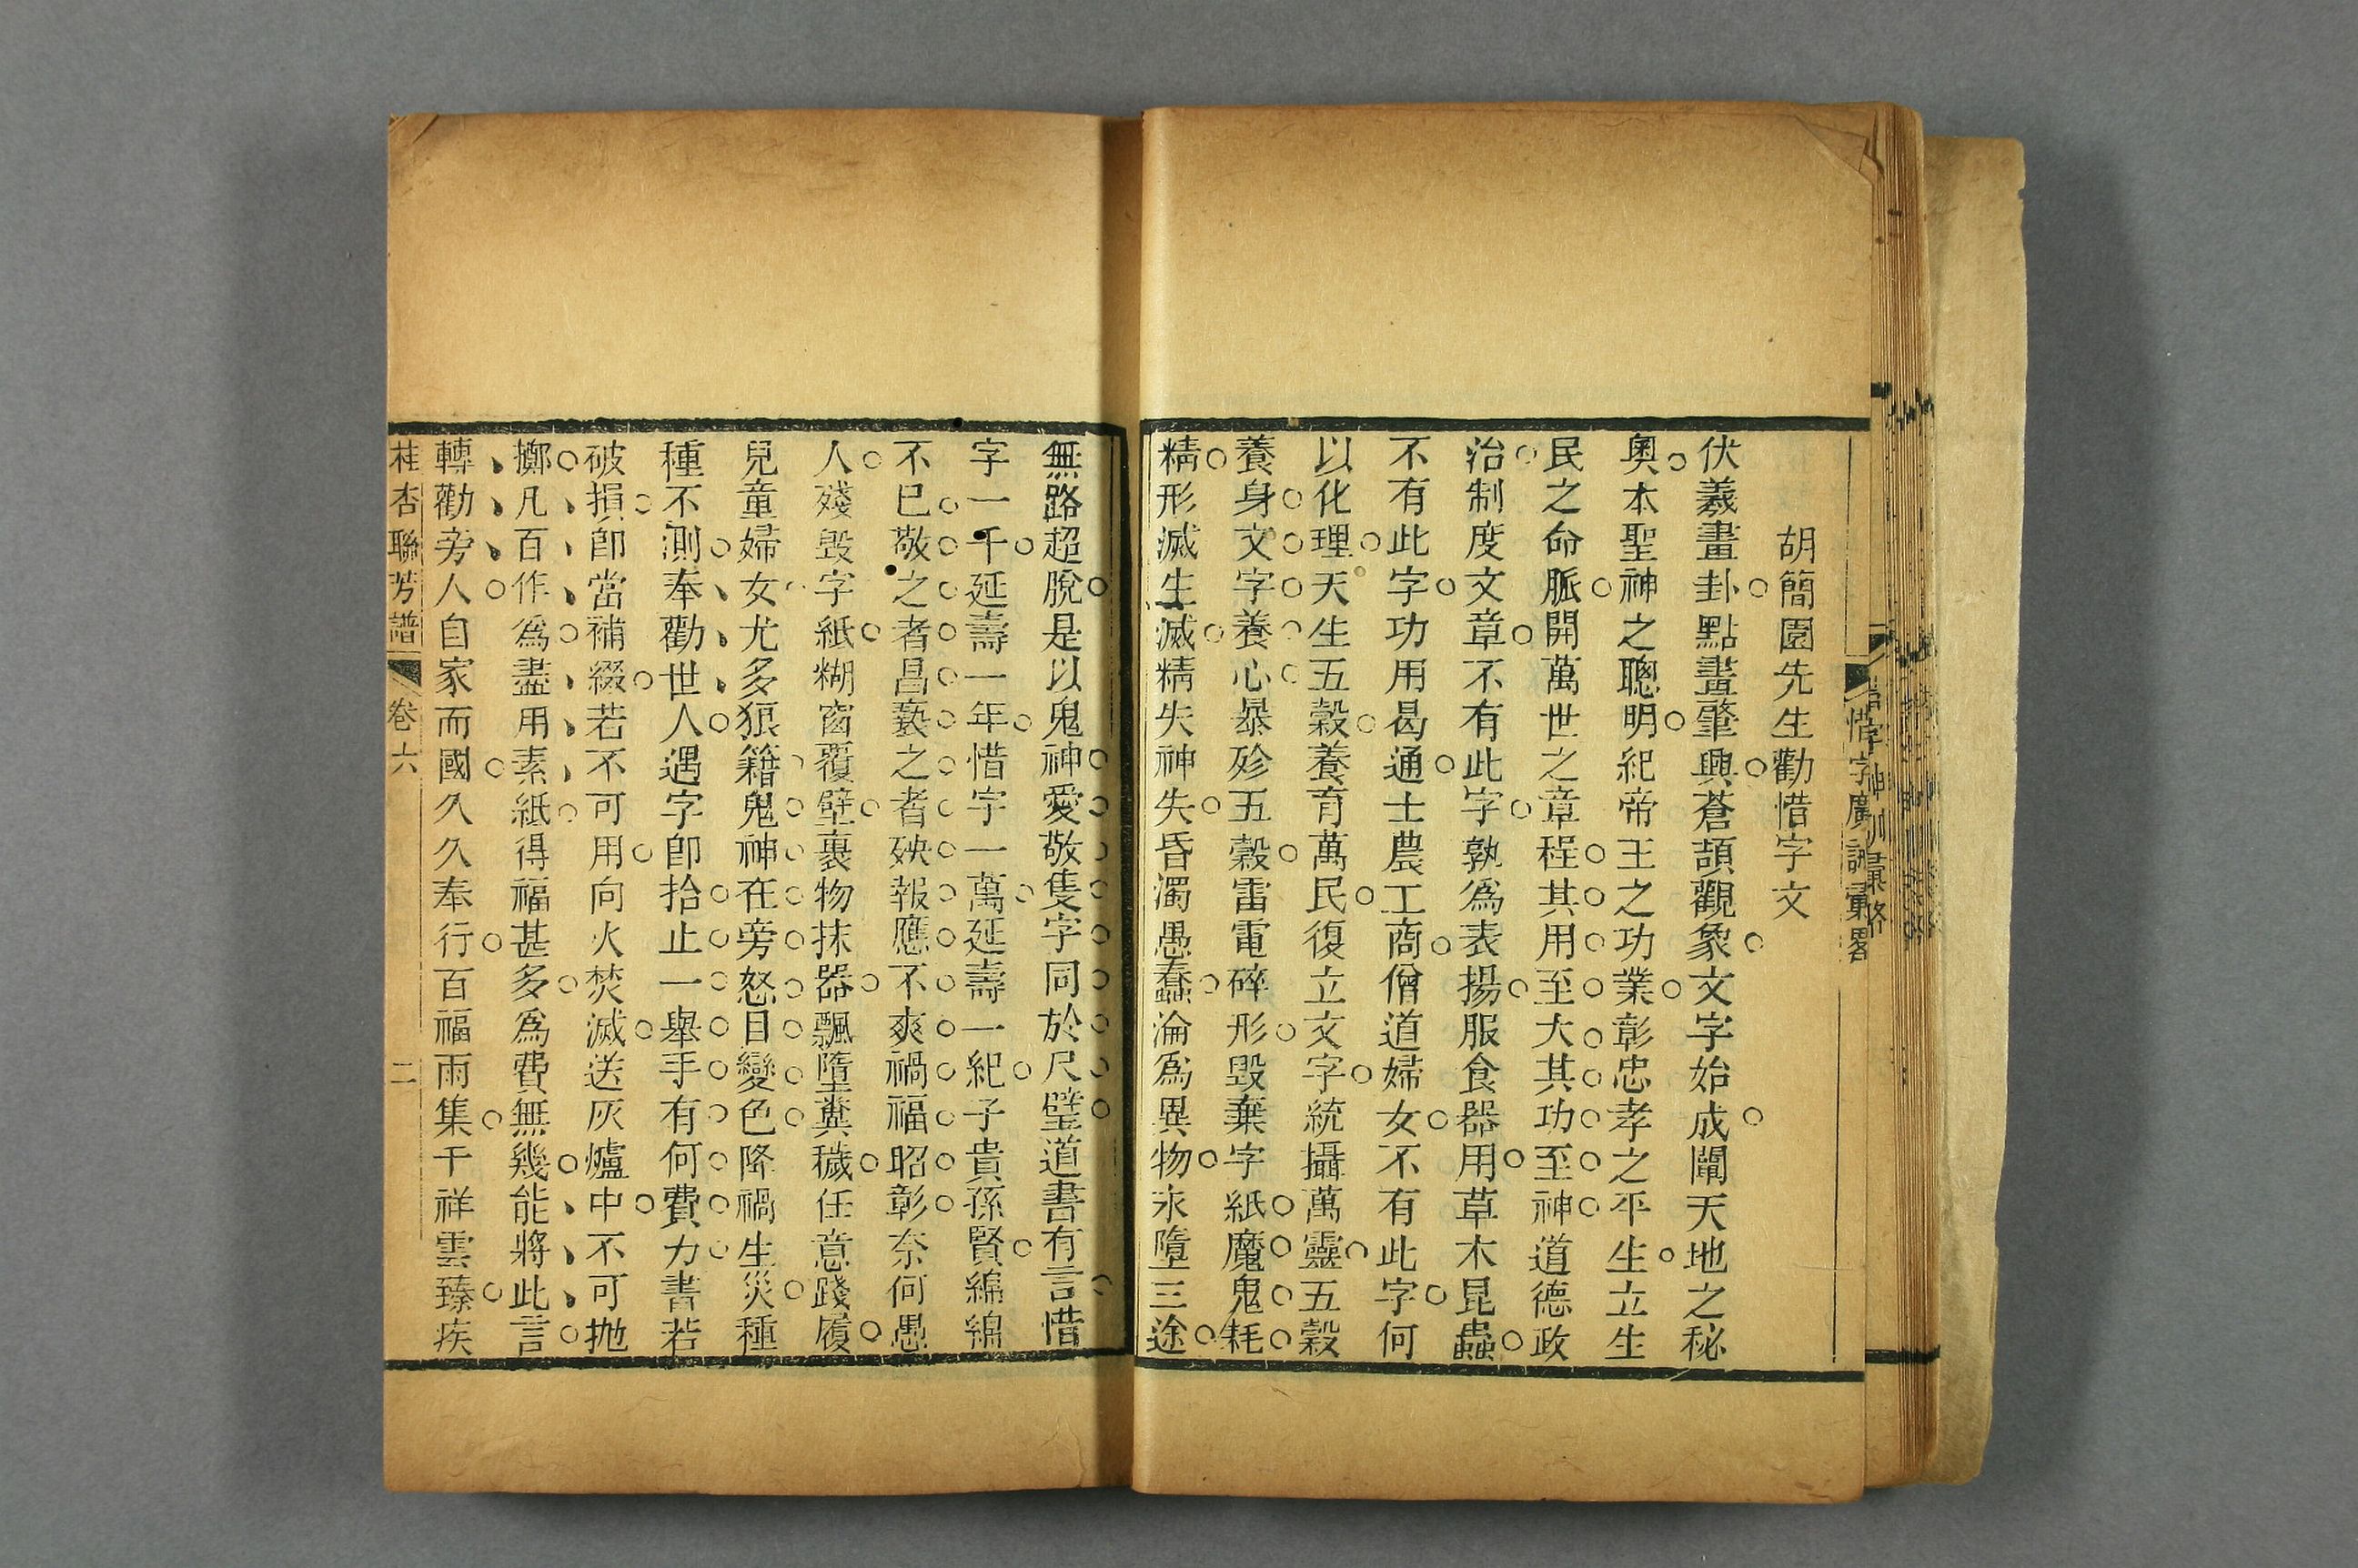 惜字廣訓彙畧
胡簡園先生勸惜字文
伏羲畫卦點畫肇興蒼頡觀象文字始成闡天地之秘
奧本聖神之聰明紀帝王之功業彰忠孝之平生立生
民之命脈開萬世之章程其用至大其功至神道德政
治制度文章不有此字孰爲表揚服食器用草木昆蟲
不有此字功用曷通士農工商僧道婦女不有此字何
以化理天生五穀養育萬民復立文字統攝萬靈五穀
養身文字養心暴殄五穀雷電碎形毀棄字紙魔鬼耗
精形滅生滅精失神失昏濁愚蠢淪爲異物永墮三途
無路超脫是以鬼神愛敬隻字同於尺璧道書有言惜
字一千延壽一年惜字一萬延壽一紀子貴孫賢綿綿
不已敬之者昌褻之者殃報應不爽禍福昭彰奈何愚
人殘毀字紙糊窗覆壁裹物抹器飄墮糞穢任意踐履
兒童婦女尤多狼籍鬼神在旁怒目變色降禍生災種
種不測奉勸世人遇字卽拾止一舉手有何費力書若
破損卽當補綴若不可用向火焚滅送灰爐中不可拋
擲凡百作爲盡用素紙得福甚多爲費無幾能將此言
轉勸旁人自家而國久久奉行百福雨集千祥雲臻疾
桂杏聯芳譜 卷六 二